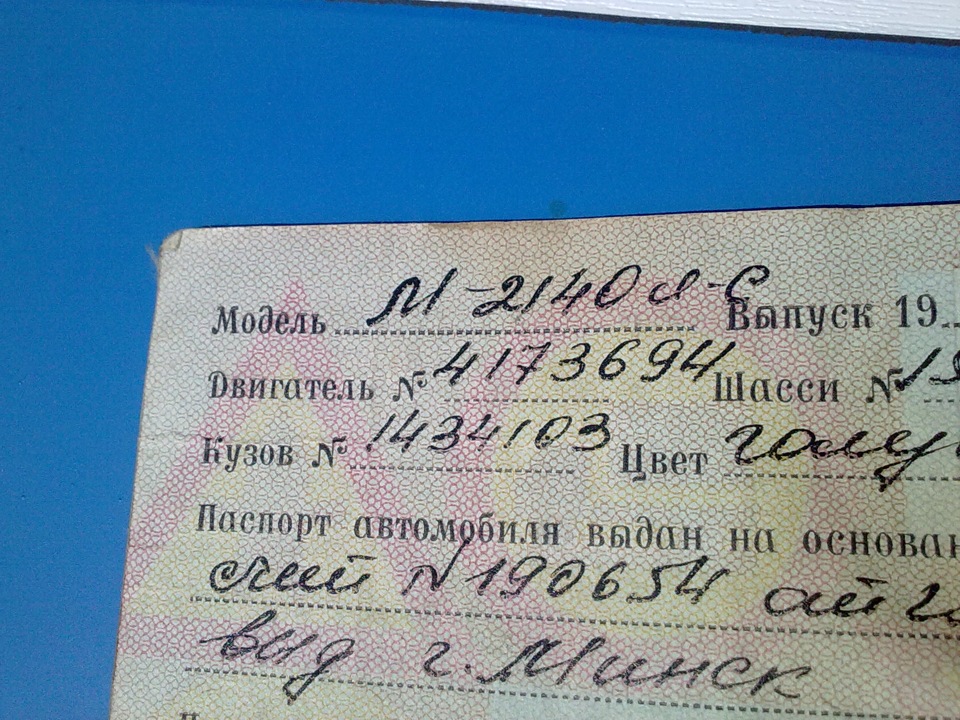 Модель М-2140 Л-С Выпуск 19
Двигатель № 4173694 Шасси №
Кузов № 1434103 Цвет голу
Паспорт автомобиля выдан на основан
счет N 190654 от
выд г. Минск